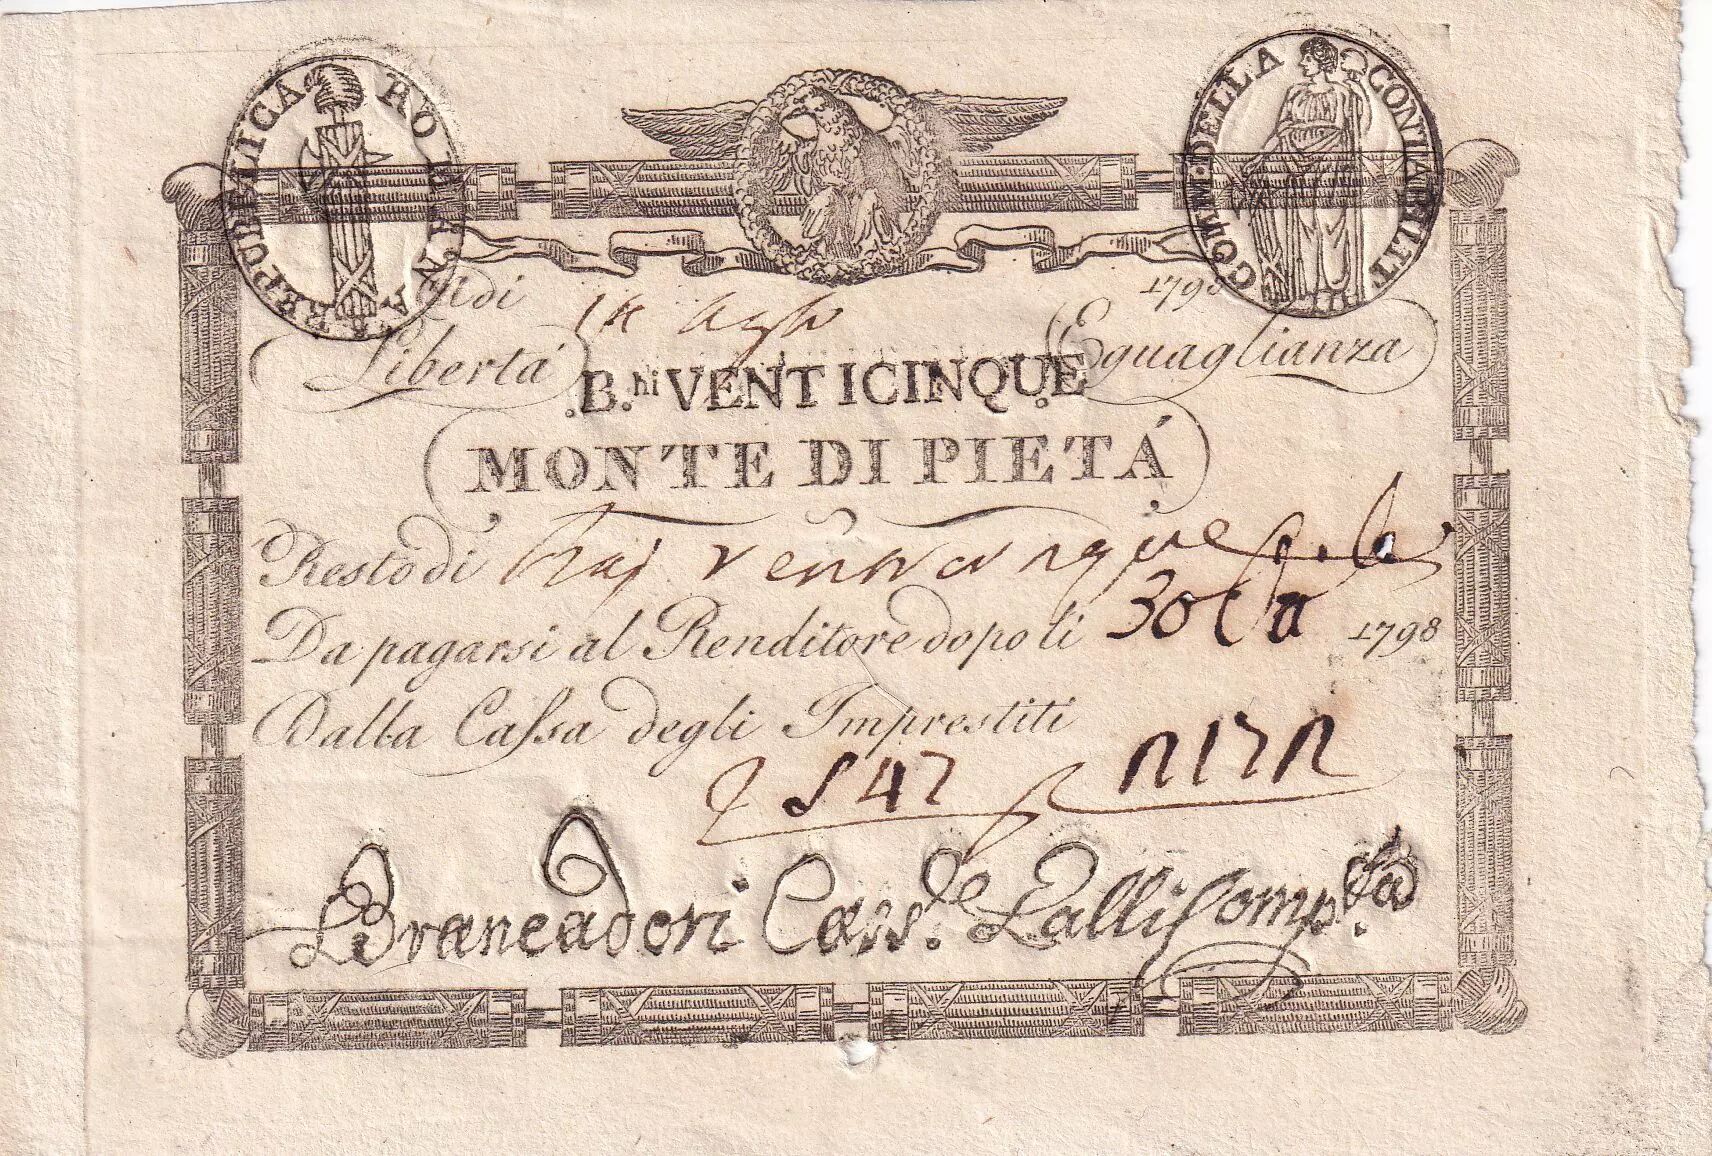 REPUBLICA ROMANA
COMM. DELLA CONTABILIT
Adi 14 Agto 1798
Libertá Eguaglianza
B.hi VENTICINQUE
MONTE DI PIETÁ
Resto di baj venticinque
Da pagarsi al Renditore dopo li 30 1798
Dalla Cassa degli Imprestiti
2547
Brancadori Cass.e Lalli Comp.ta